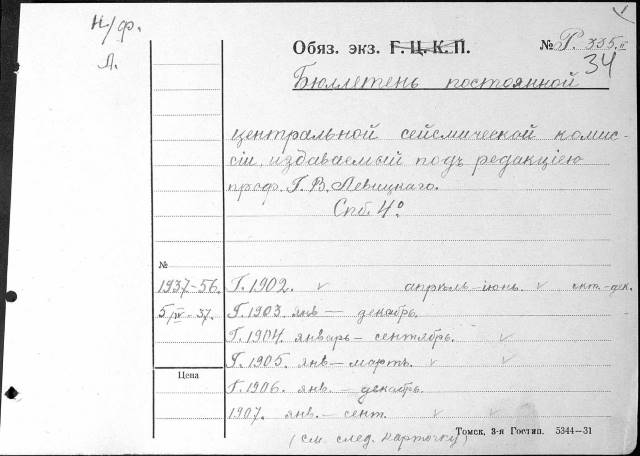 н/ф.
Л.
Обяз. экз. Г. Ц. К. П.
№ Р. 335 II
34
Бюллетень постоянной
центральной сейсмической комис-
сiи, издаваемый подъ редакцiею
проф. Г. В. Левицкаго.
Спб. 4°
№
1937-56. Г. 1902. v апрѣль-iюнь. v окт.-дек.
5/IV-37. Г. 1903. янв — декабрь.
Г. 1904. январь — сентябрь. v
Г. 1905. янв — мартъ. v v
Цена
Г. 1906. янв. — декабрь.
1907. янв. — сент. v v
(см. след. карточку)
Томск, 3-я Гостип. 5344—31